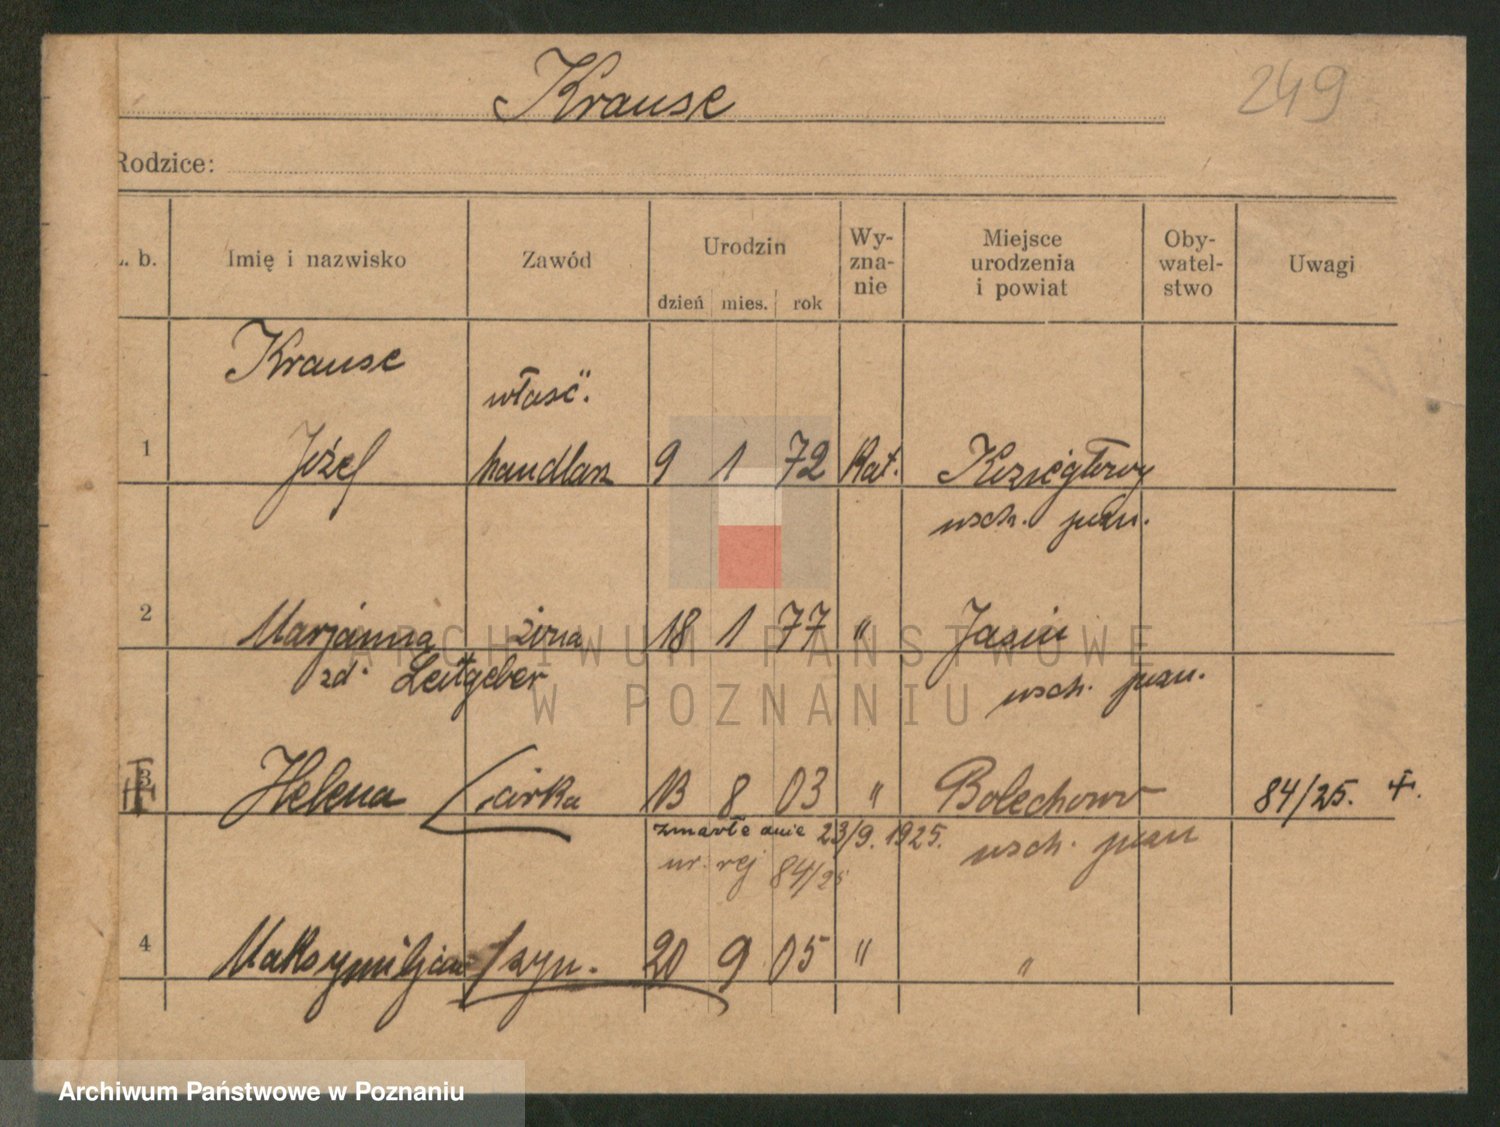 Krause
249
Rodzice:
L. b. Imię i nazwisko Zawód Urodzin dzień mies. rok Wy-zna-nie Miejsce urodzenia i powiat Oby-watel-stwo Uwagi
Krause
właść.
1 Józef handlarz 9 1 72 Kat. Koziegłowy
wsch. pozn.
2 Marjanna żona 18 1 77 " Jasin
zd. Leitgeber wsch. pozn.
3 Helena córka 13 8 03 " Bolechowo 84/25. +.
zmarła dnia 23/9. 1925. wsch. pozn
nr. rej 84/25
4 Maksymiljan syn. 20 9 05 " "
ARCHIWUM PAŃSTWOWE
W POZNANIU
Archiwum Państwowe w Poznaniu